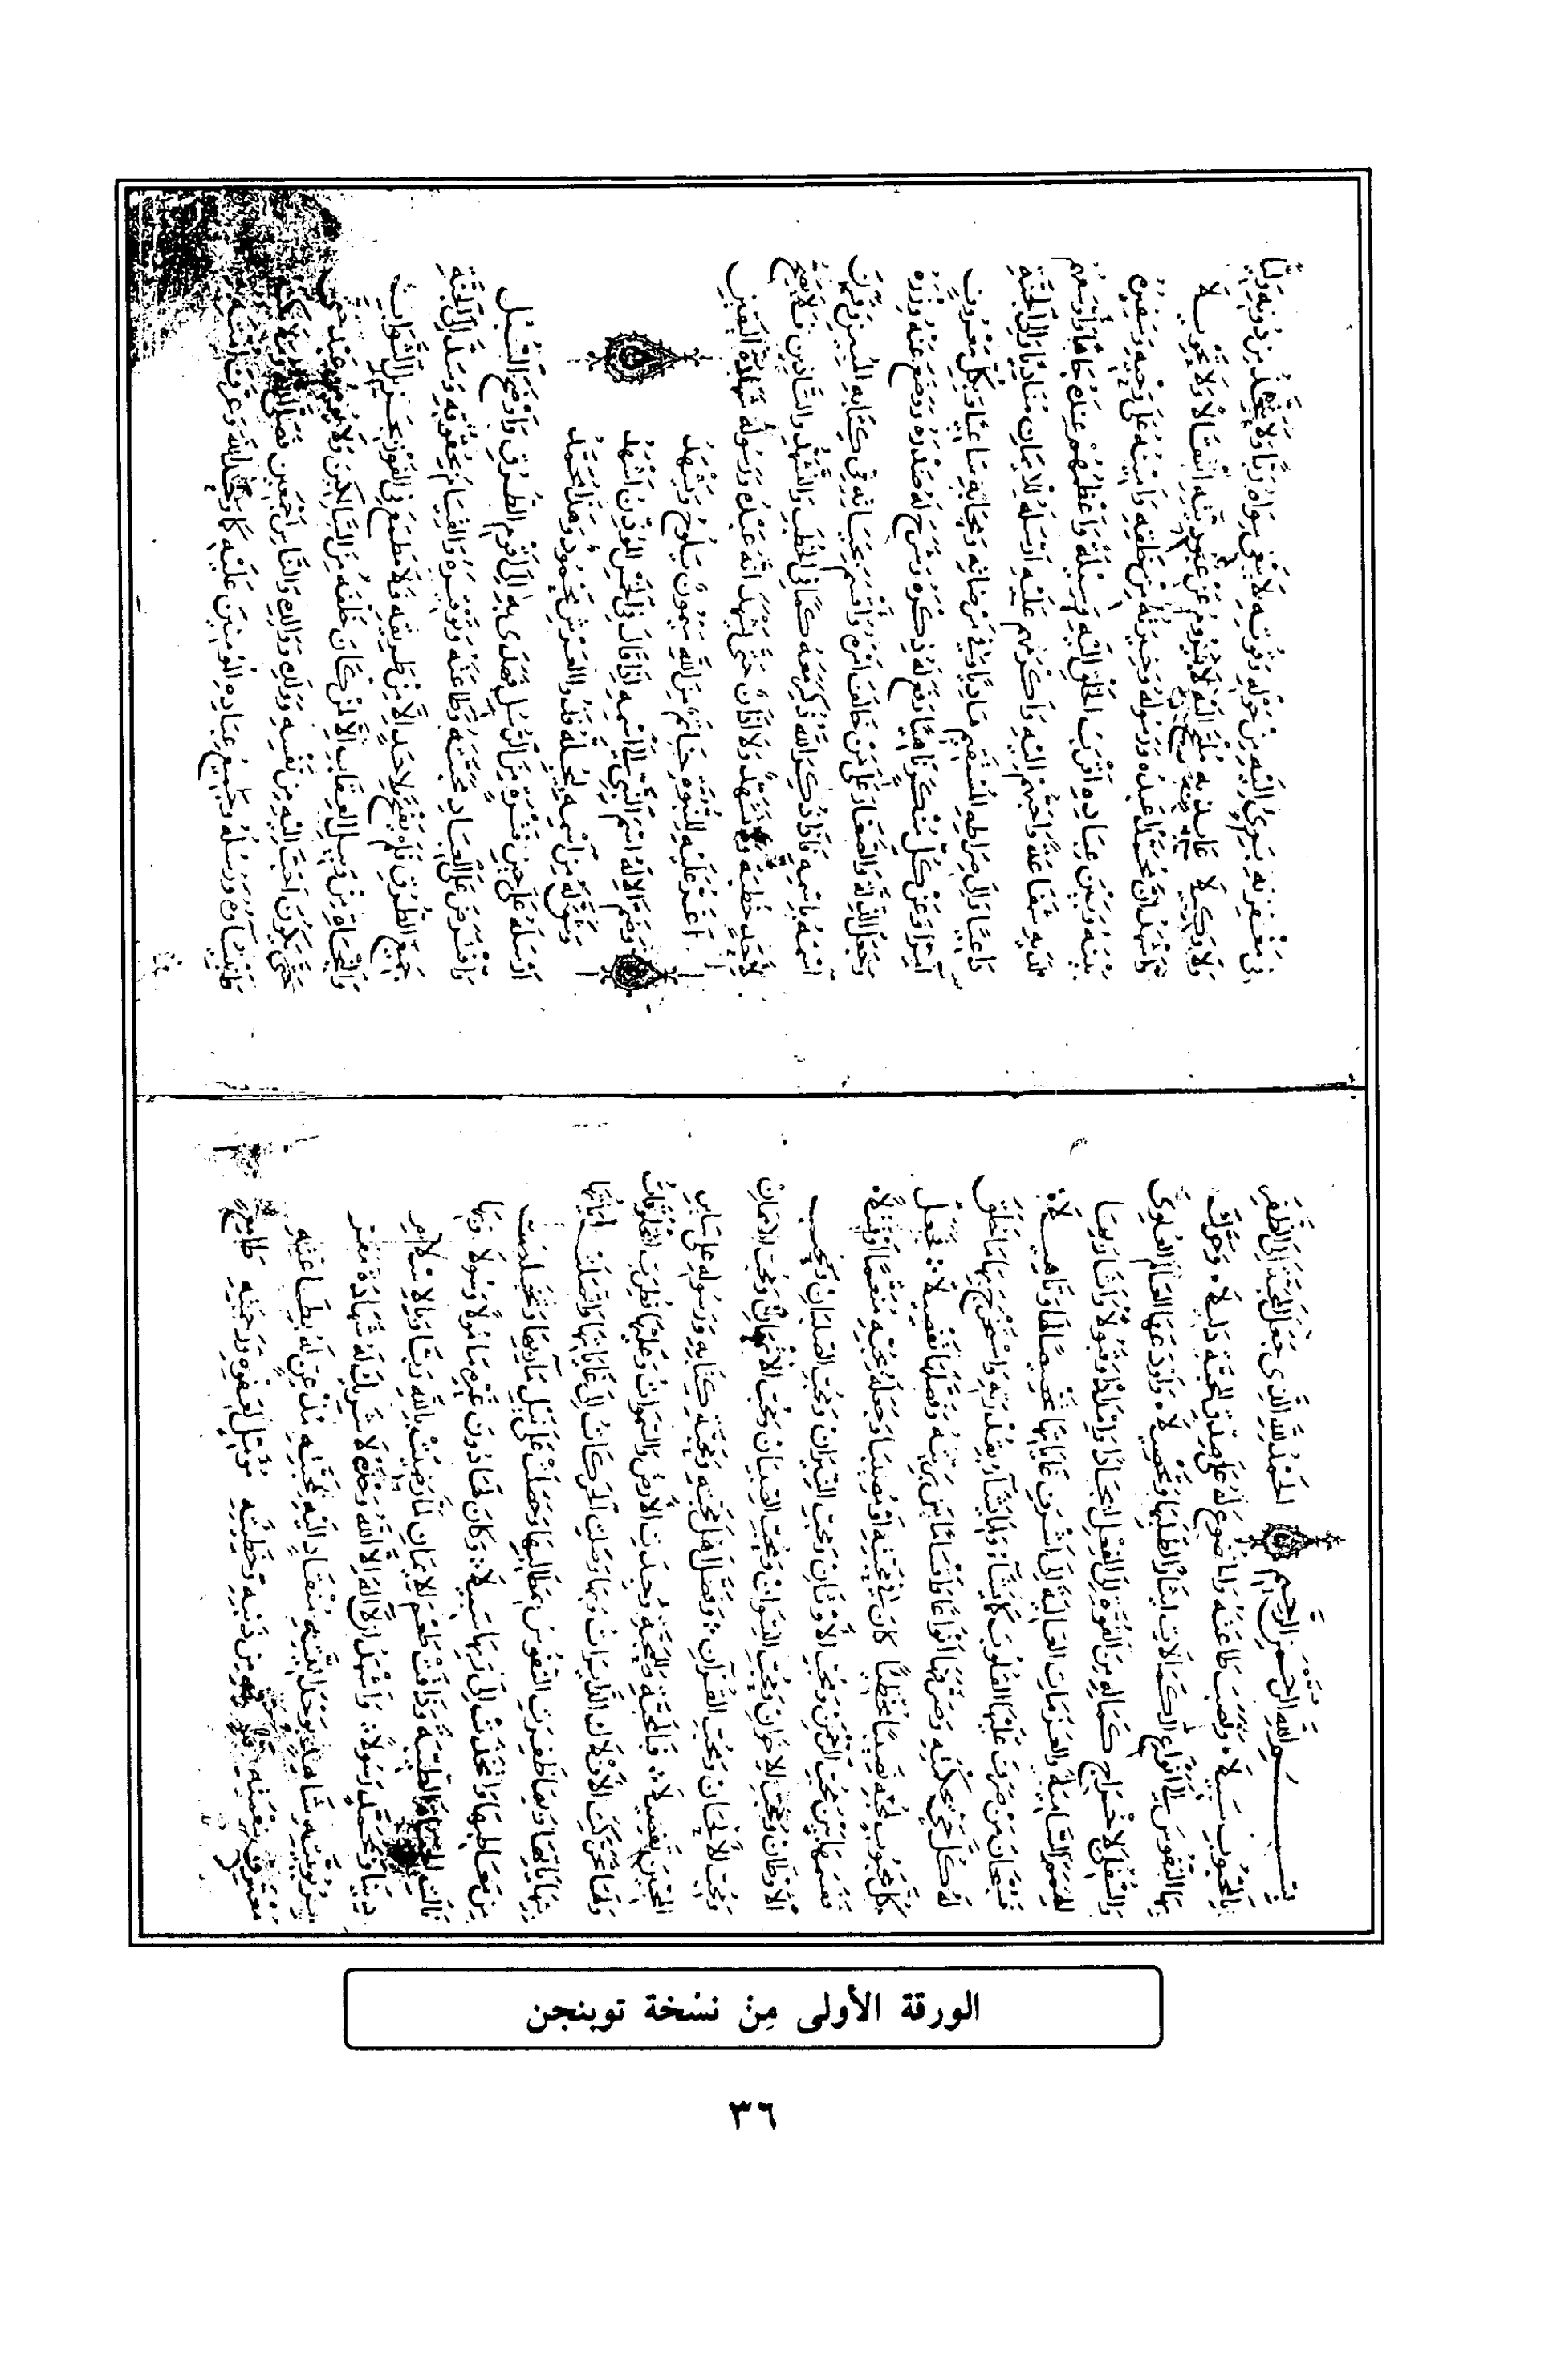 بسم الله الرحمن الرحيم الحمد لله الذي جعل المحبة إلى الظفر
بالمحبوب سبيلا ونصب طاعته والخضوع له على صدق المحبة دليلا وحرك
بها النفوس إلى أنواع الكمالات إيثارا لطلبها وتحصيلا وأودعها العالم العلوي
والسفلي لإخراج كماله من القوة إلى الفعل إيجادا وإمدادا وقبولا وأثار بها
الهمم السامية والعزمات العالية إلى أشرف غاياتها تخصيصا لها وتأهيلا
فسبحان من صرف عليها القلوب كما يشاء ولما يشاء بقدرته واستخرج بها ما خلق
له كل حي بحكمته وصرفها أنواعا وأقساما بين بريته وفصلها تفصيلا فجعل
كل محبوب لمحبه نصيبا مخطئا كان في محبته أو مصيبا وجعله بحبه منعما أو قتيلا
فقسمها بين محب الرحمن ومحب الأوثان ومحب النيران ومحب الصلبان ومحب
الأوطان ومحب الإخوان ومحب النسوان ومحب الصبيان ومحب الأثمان ومحب الإيمان
ومحب الألحان ومحب القرآن وفضل أهل محبته ومحبة كتابه ورسوله على سائر
المحبين تفضيلا فبالمحبة وللمحبة وجدت الأرض والسموات وعليها فطرت المخلوقات
ولها تحركت الأفلاك الدائرات وبها وصلت الحركات إلى غاياتها واتصلت بداياتها
بنهاياتها وبها ظفرت النفوس بمطالبها وحصلت على نيل مآربها وتخلصت
من معاطبها واتخذت إلى ربها سبيلا وكان لها دون غيره مأمولا وسولا وبها
نالت الحياة الطيبة وذاقت طعم الإيمان لما رضيت بالله ربا وبالإسلام
دينا وبمحمد رسولا وأشهد أن لا إله إلا الله وحده لا شريك له شهادة مقر
بربوبيته شاهد بوحدانيته منقاد إليه لمحبته مذعن له بطاعته
معترف بنعمته إليه من ذنبه وخطيئته مؤمل لعفوه ورحمته طامع
في مغفرته بريء إليه من حوله وقوته لا يبتغي سواه ربا ولا يتخذ من دونه وليا
ولا وكيلا عائذ به ملتج إليه لا يروم عن عبوديته انتقالا ولا تحويلا
وأشهد أن محمدا عبده ورسوله وخيرته من خلقه وأمينه على وحيه وسفيره
بينه وبين عباده أقرب الخلق إليه وسيلة وأعظمهم عنده جاها وأوسعهم
لديه شفاعة وأحبهم إليه وأكرمهم عليه أرسله للإيمان مناديا وإلى الجنة
داعيا وإلى صراطه المستقيم هاديا وفي مرضاته ومحابه ساعيا وبكل معروف
آمرا وعن كل منكر ناهيا رفع له ذكره وشرح له صدره ووضع عنه وزره
وجعل الذلة والصغار على من خالف أمره وأقسم بحياته في كتابه المبين وقرن
اسمه باسمه فإذا ذكر الله ذكر معه كما في الخطب والتشهد والتأذين فلا يصح
لأحد خطبة ولا تشهد ولا أذان حتى يشهد أنه عبده ورسوله شهادة اليقين
أغر عليه للنبوة خاتم من الله ميمون يلوح ويشهد
وضم الإله اسم النبي إلى اسمه إذا قال في الخمس المؤذن أشهد
وشق له من اسمه ليجله فذو العرش محمود وهذا محمد
أرسله على حين فترة من الرسل فهدى به إلى أقوم الطرق وأوضح السبل
وافترض على العباد محبته وطاعته وتوقيره والقيام بحقوقه وسد إلى الجنة
جميع الطرق فلم يفتح لأحد إلا من طريقه فلا مطمع في الفوز بجزيل الثواب
والنجاة من وبيل العقاب إلا لمن كان خلفه من السالكين ولا يؤمن عبد
حتى يكون أحب إليه من نفسه وولده ووالده والناس أجمعين فصلى الله وملائكته
وأنبياؤه ورسله وجميع عباده المؤمنين عليه كما وحد الله وعرف أمته
الورقة الأولى مِنْ نسْخة توبنجن
٣٦